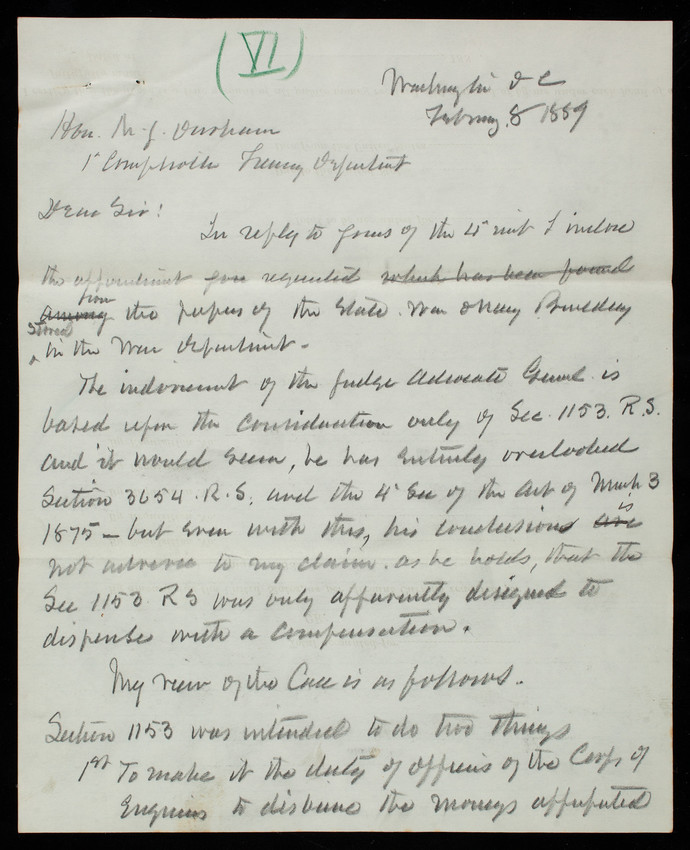 (VI)
Washington D C
February 8 1889
Hon. M. J. Durham
1st Comptroller Treasury Department
Dear Sir!
In reply to yours of the 4" inst I inclose
the appointment you requested which has been found
among from the papers of the State War & Navy Building
stored
in the War Department -
The indorsement of the Judge Advocate General is
based upon the consideration only of Sec. 1153. R.S.
and it would seem, he has entirely overlooked
Section 3654. R.S. and the 4" Sec of the Act of March 3
1875 - but even with this, his conclusions are is
not adverse to my claim. as he holds, that the
Sec 1153 RS was only apparently designed to
dispense with a compensation.
My view of the Case is as follows.
Section 1153 was intended to do two things
1st To make it the duty of officers of the Corps of
Engineers to disburse the moneys appropriated